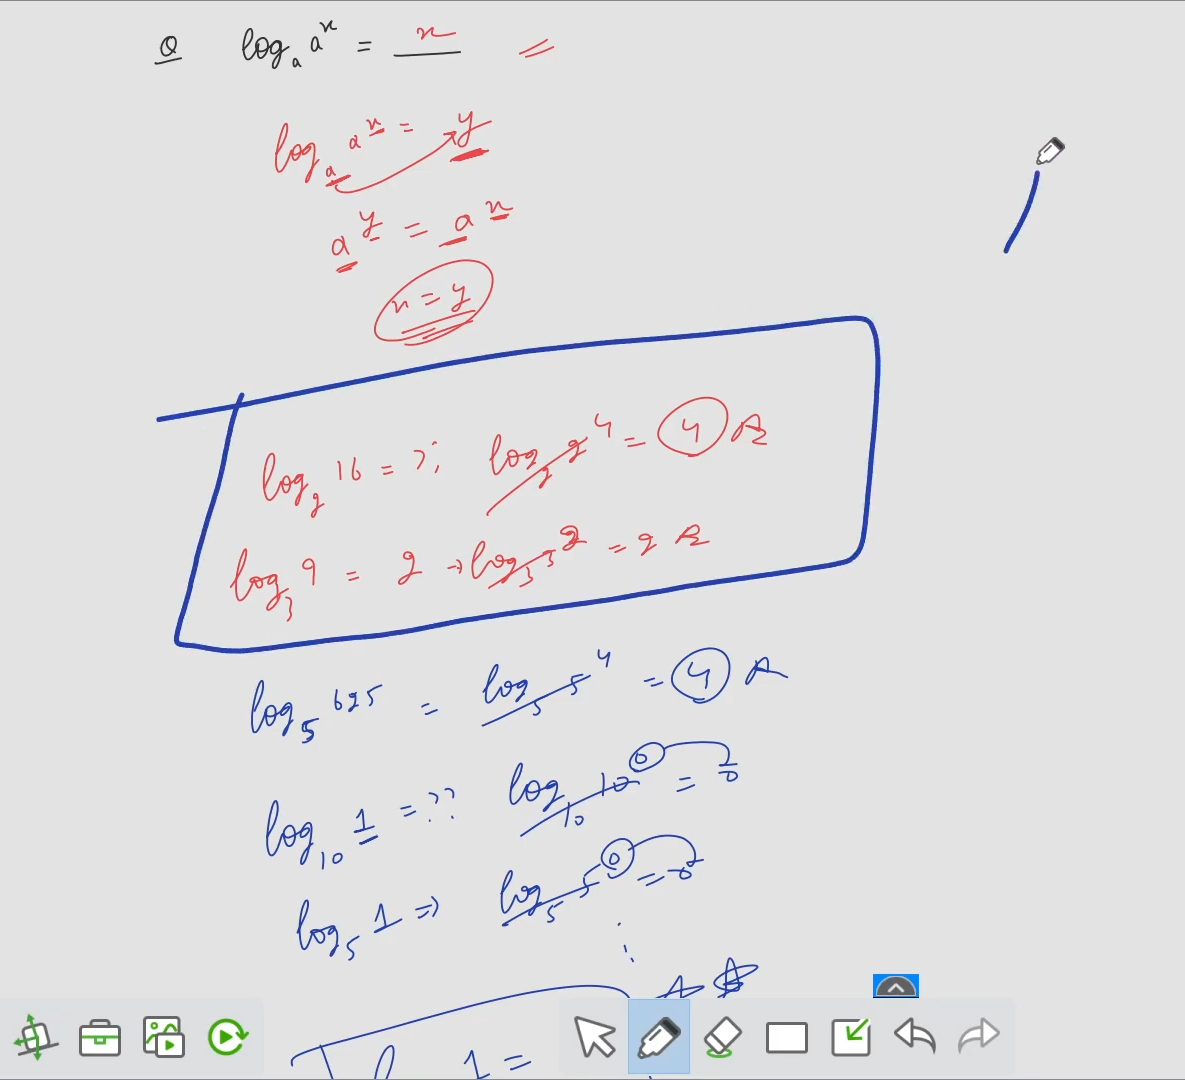 Q logₐ aˣ = x
logₐ aˣ = y
aʸ = aˣ
x = y
log₂ 16 = ?; log₂ 2⁴ = 4
log₃ 9 = 2 → log₃ 3² = 2
log₅ 625 = log₅ 5⁴ = 4
log₁₀ 1 = ?? log₁₀ 10⁰ = 0
log₅ 1 ⇒ log₅ 5⁰ = 0
1 =